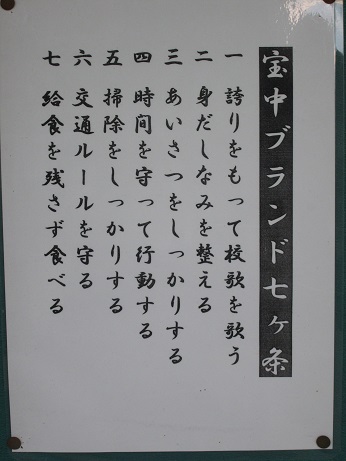 宝中ブランド七ヶ条
一 誇りをもって校歌を歌う
二 身だしなみを整える
三 あいさつをしっかりする
四 時間を守って行動する
五 掃除をしっかりする
六 交通ルールを守る
七 給食を残さず食べる